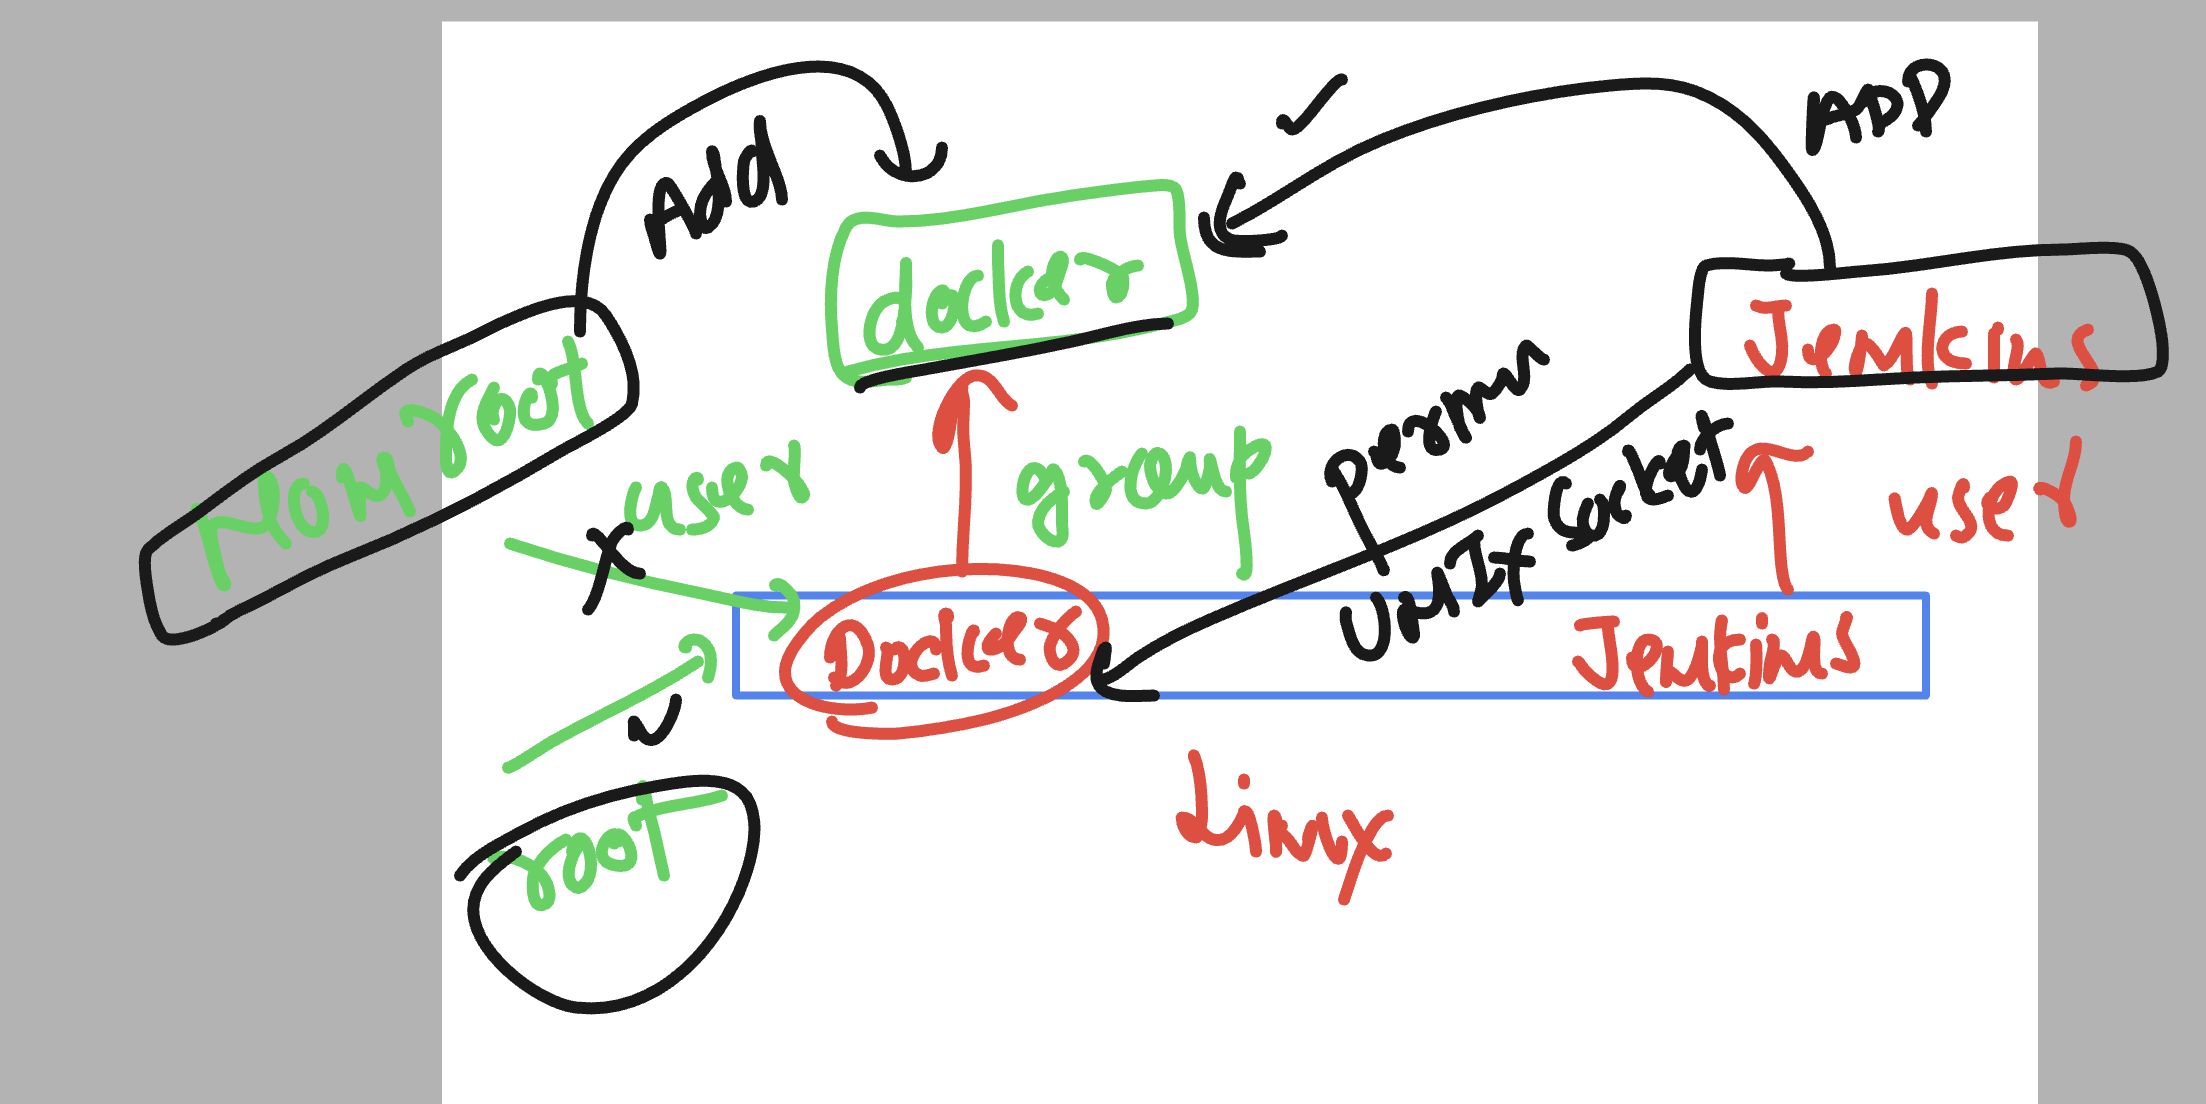 ADD
Add
docker
Jenkins
Non root
user
group
permn
Unix Socket
user
Docker
Jenkins
root
Linux